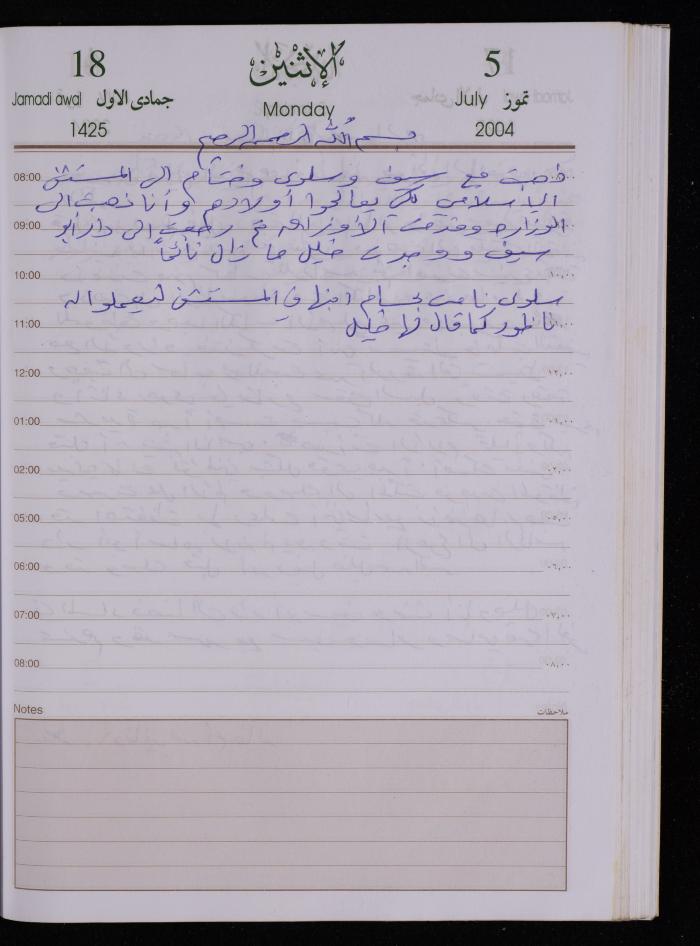 18 الإثنين 5
Jamadi awal جمادى الاول Monday July تموز
1425 2004
بسم الله الرحمن الرحيم
08:00 ذهبت مع سيف وسلوى وختام الى المستشفى
الاسلامي لكي يعالجوا أولادهم وأنا ذهبت الى
09:00 الوزارة وقدمت الأوراق ثم رجعت الى دار أبو
سيف ووجدت خليل ما زال نائماً
10:00 ١٠,٠٠
سلوى نامت بحسام ابنها في المستشفى ليعملوا له
11:00 ناظور كما قال لها خليل
12:00 ١٢,٠٠
01:00 ٠١,٠٠
02:00 ٠٢,٠٠
05:00 ٠٥,٠٠
06:00 ٠٦,٠٠
07:00 ٠٧,٠٠
08:00 ٠٨,٠٠
Notes ملاحظات